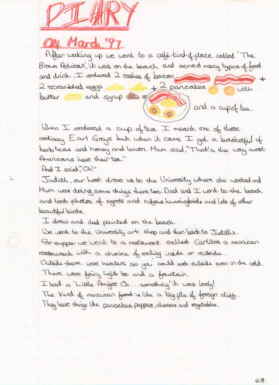 DIARY
on March '97
After waking up we went to a café-kind of place called "The
Brown Pelican", it was on the beach and served many types of food
and drink. I ordered 2 rashers of bacon +
2 scrambled eggs + 2 pancakes with
butter and syrup and a cup of tea.
When I ordered a cup of tea I meant one of those
ordinary Earl Grey's but when it came I got a basketful of
herb teas and honey and lemon. Mum said, "That's the way most
Americans have their tea."
And I said, "Oh!"
Judith, our host drove us to the University where she worked and
Mum were doing some things there too. Dad and I went to the beach
and took photos of egrets and hummingbirds and lots of other
beautiful birds.
I drew and dad painted on the beach.
We went to the University art shop and then back to Judith's.
For supper we went to a restaurant called Carlitos a mexican
restaurant with a choice of eating inside or outside.
Outside there were heaters so you could eat outside even in the cold.
There were fairy lights too and a fountain.
I had a "Little Amigos Co.. something" it was lovely!
The kind of mexican food is like a big pile of foreign stuff.
They have things like pancakes, peppers, cheeses and vegetables.